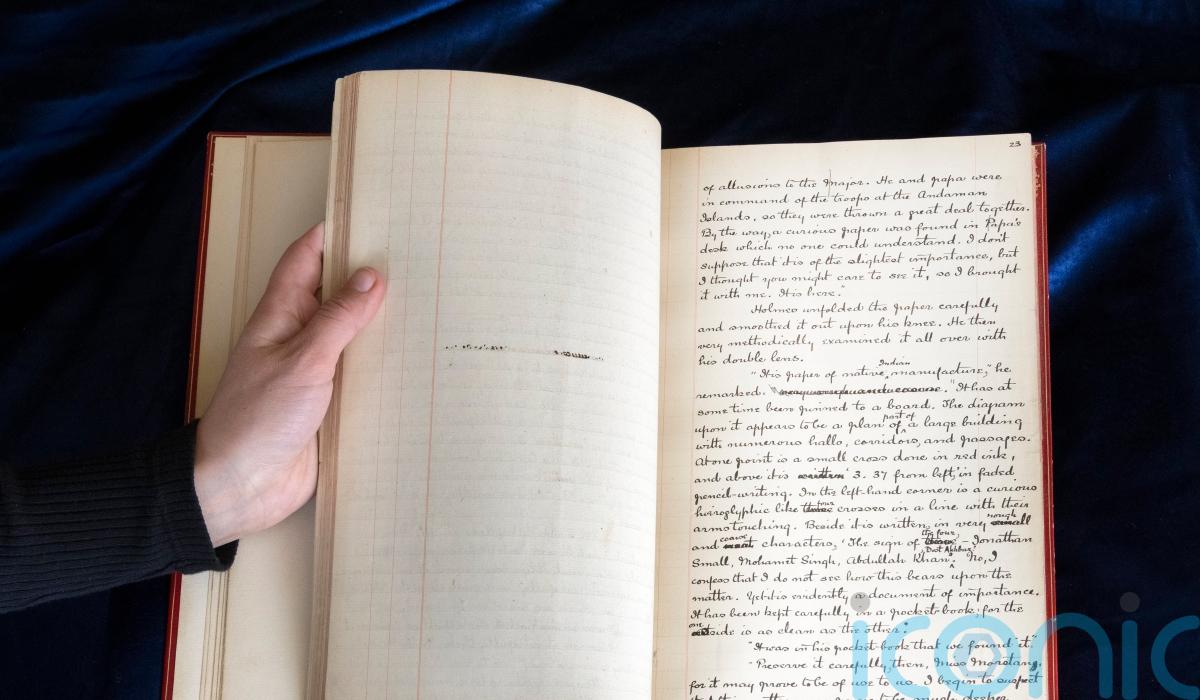 23
of allusions to the Major. He and papa were
in command of the troops at the Andaman
Islands, so they were thrown a great deal together.
By the way, a curious paper was found in Papa's
desk which no one could understand. I don't
suppose that it is of the slightest importance, but
I thought you might care to see it, so I brought
it with me. It is here."
Holmes unfolded the paper carefully
and smoothed it out upon his knee. He then
very methodically examined it all over with
his double lens.
Indian
"It is paper of native manufacture," he
remarked. "It has at
some time been pinned to a board. The diagram
part of
upon it appears to be a plan of a large building
with numerous halls, corridors, and passages.
At one point is a small cross done in red ink,
and above it is written '3. 37 from left,' in faded
pencil-writing. In the left-hand corner is a curious
four
hieroglyphic like three crosses in a line with their
arms touching. Beside it is written, in very small
rough
coarse
and neat characters, 'The sign of three – Jonathan
the four,
Small, Mahomet Singh, Abdullah Khan'. No, I
Dost Akbar
confess that I do not see how this bears upon the
matter. Yet it is evidently a document of importance.
It has been kept carefully in a pocket-book; for the
one
side is as clean as the other."
"It was in his pocket-book that we found it."
"Preserve it carefully, then, Miss Morstan,
for it may prove to be of use to us. I begin to suspect
to be much deeper
iconic